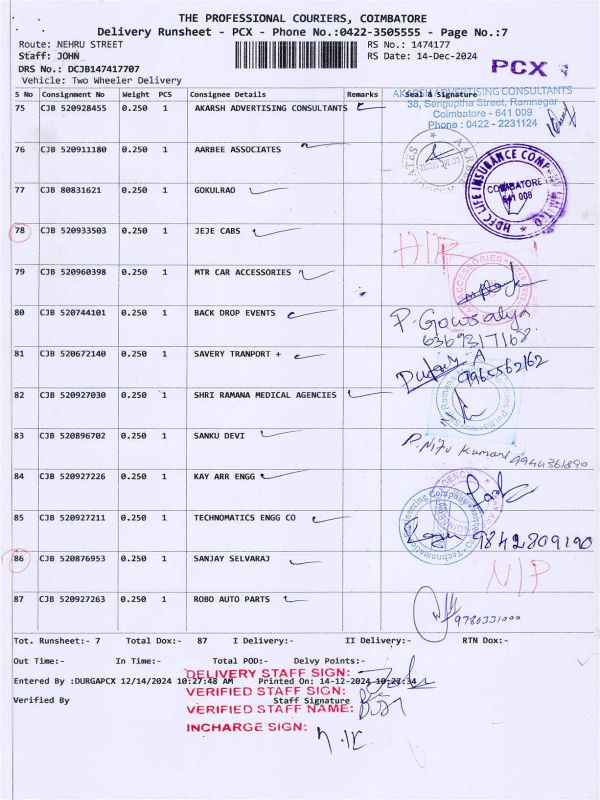 THE PROFESSIONAL COURIERS, COIMBATORE
Delivery Runsheet - PCX - Phone No.:0422-3505555 - Page No.:7
Route: NEHRU STREET RS No.: 1474177
Staff: JOHN RS Date: 14-Dec-2024
DRS No.: DCJB147417707 PCX
Vehicle: Two Wheeler Delivery
S No Consignment No Weight PCS Consignee Details Remarks Seal & Signature
75 CJB 520928455 0.250 1 AKARSH ADVERTISING CONSULTANTS
AKARSH ADVERTISING CONSULTANTS
38, Senguptha Street, Ramnagar
Coimbatore - 641 009
Phone : 0422 - 2231124
76 CJB 520911180 0.250 1 AARBEE ASSOCIATES
77 CJB 80831621 0.250 1 GOKULRAO
HDFC LIFE INSURANCE COMPANY LIMITED
COIMBATORE
641 009
78 CJB 520933503 0.250 1 JEJE CABS
79 CJB 520960398 0.250 1 MTR CAR ACCESSORIES
80 CJB 520744101 0.250 1 BACK DROP EVENTS
P. Gowsalya
6369317168
81 CJB 520672140 0.250 1 SAVERY TRANPORT +
9965562162
82 CJB 520927030 0.250 1 SHRI RAMANA MEDICAL AGENCIES
83 CJB 520896702 0.250 1 SANKU DEVI
P. Nitu Kumari 9944361890
84 CJB 520927226 0.250 1 KAY ARR ENGG
85 CJB 520927211 0.250 1 TECHNOMATICS ENGG CO
9842809190
86 CJB 520876953 0.250 1 SANJAY SELVARAJ
N/P
87 CJB 520927263 0.250 1 ROBO AUTO PARTS
9780331000
Tot. Runsheet:- 7 Total Dox:- 87 I Delivery:- II Delivery:- RTN Dox:-
Out Time:- In Time:- Total POD:- Delvy Points:-
DELIVERY STAFF SIGN:
Entered By :DURGAPCX 12/14/2024 10:27:48 AM Printed On: 14-12-2024 10:27:34
VERIFIED STAFF SIGN:
Verified By Staff Signature
VERIFIED STAFF NAME:
INCHARGE SIGN: